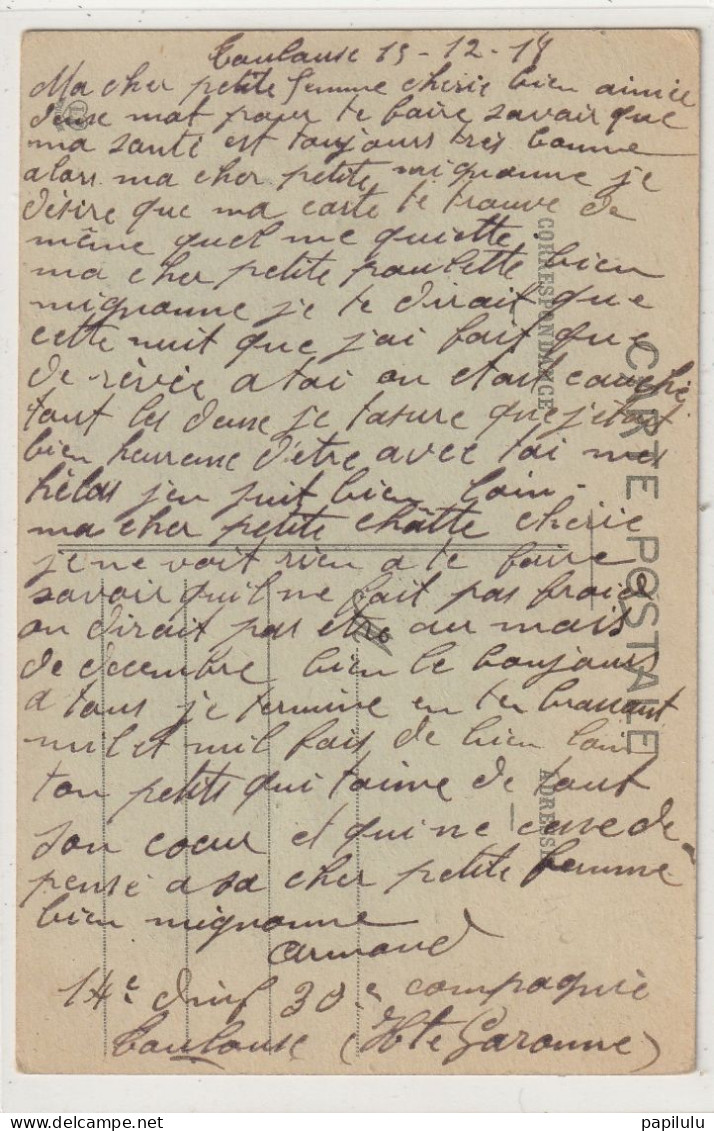 Toulouse 15-12-14
Ma cher petite femme cherie bien aimée
deux mot pour te faire savoir que
ma santé est toujours très bonne
alors ma cher petite mignonne je
désire que ma carte te trouve de
même quel me quiette. bien
ma cher petite paulette bien
mignonne je te dirait que
cette nuit que j'ai fait que
de rêvée a toi on etait couché
tout les deux je tasure que j'etait
bien heureuse d'etre avec toi mes
hélas j'en suit bien loin -
ma cher petite châtte cherie
je ne voit rien a te faire
savoir qu'il ne fait pas froid
on dirait pas etre au mois
de decembre bien le bonjours
a tous je termine en ten brassant
mil et mil fois de bien loin
ton petits qui t'aime de tout
son coeur et qui ne cese de
pensé a sa cher petite femme
bien mignonne
Armand
14e 30e compagnie
Toulouse (Hte Garonne)
CARTE POSTALE
CORRESPONDANCE
ADRESSE
papilulu